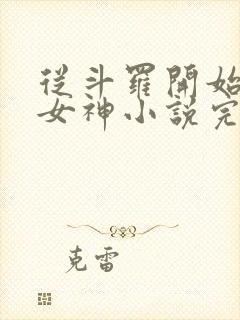 從斗羅開始
女神小說完
克雷